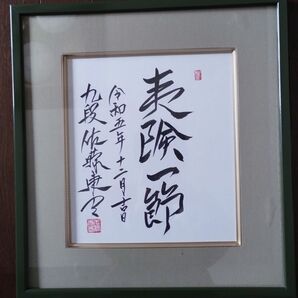 夷険一節
令和五年十二月吉日
九段 佐藤康光